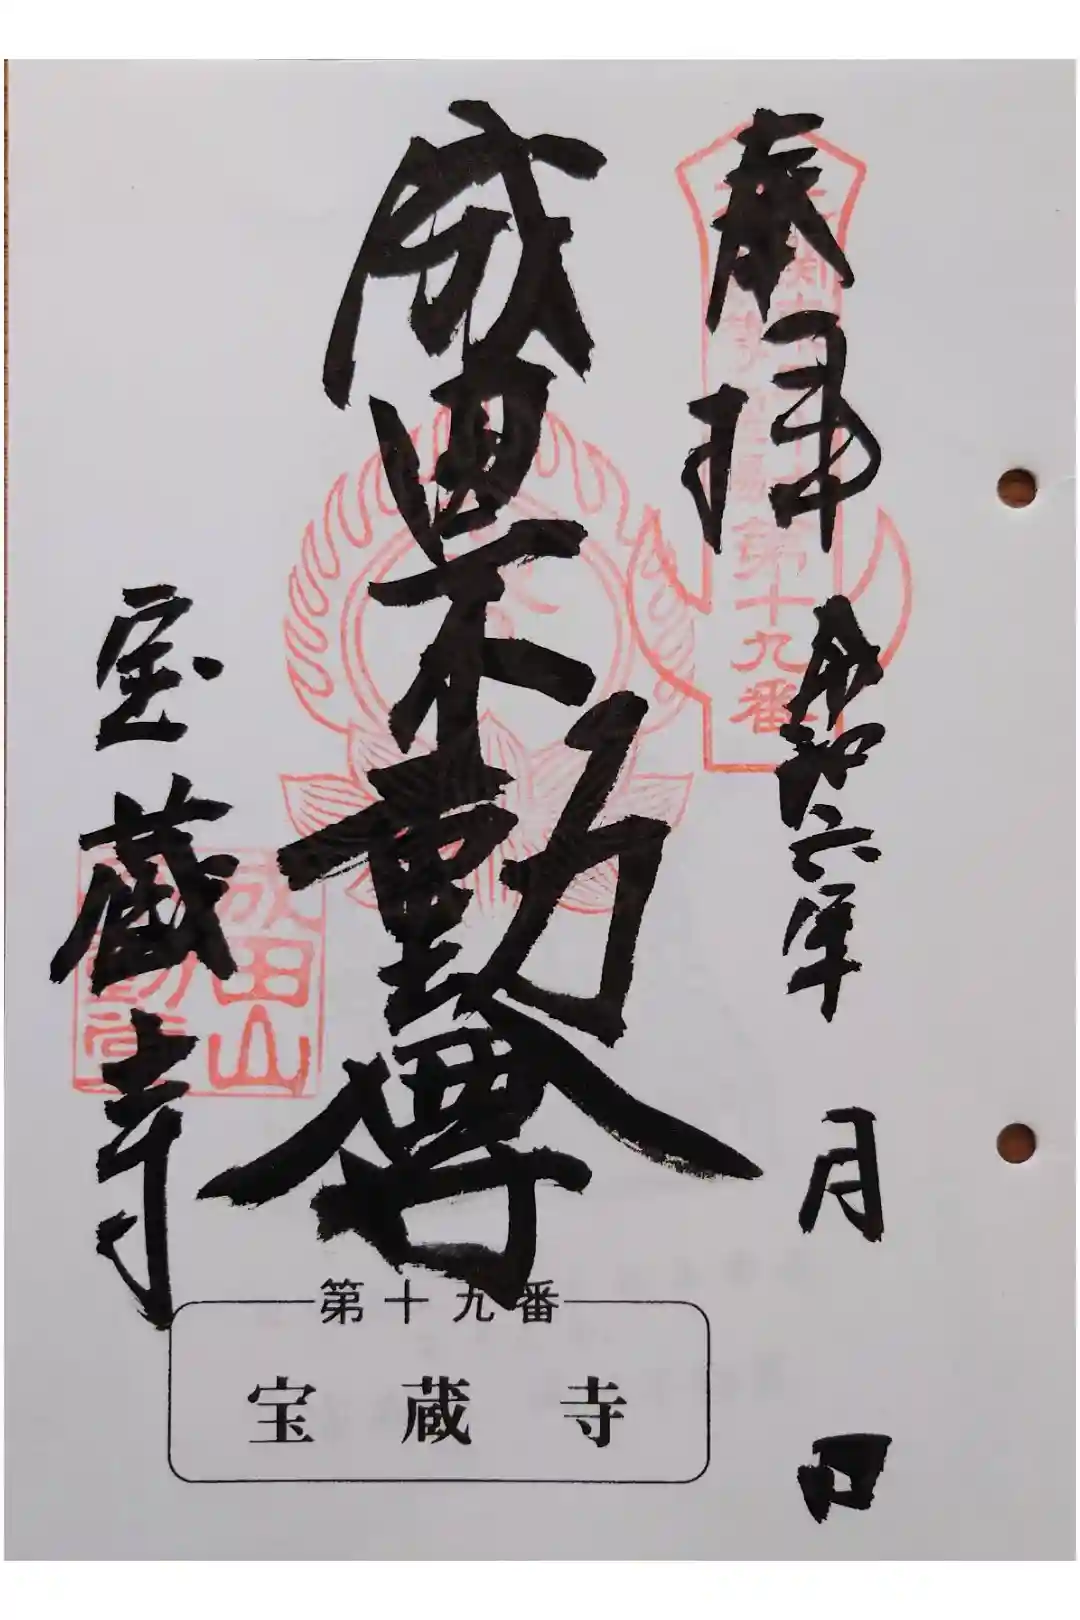 奉拝
令和六年 月 日
第十九番
成田不動尊
宝蔵寺
成田山
第十九番
宝蔵寺